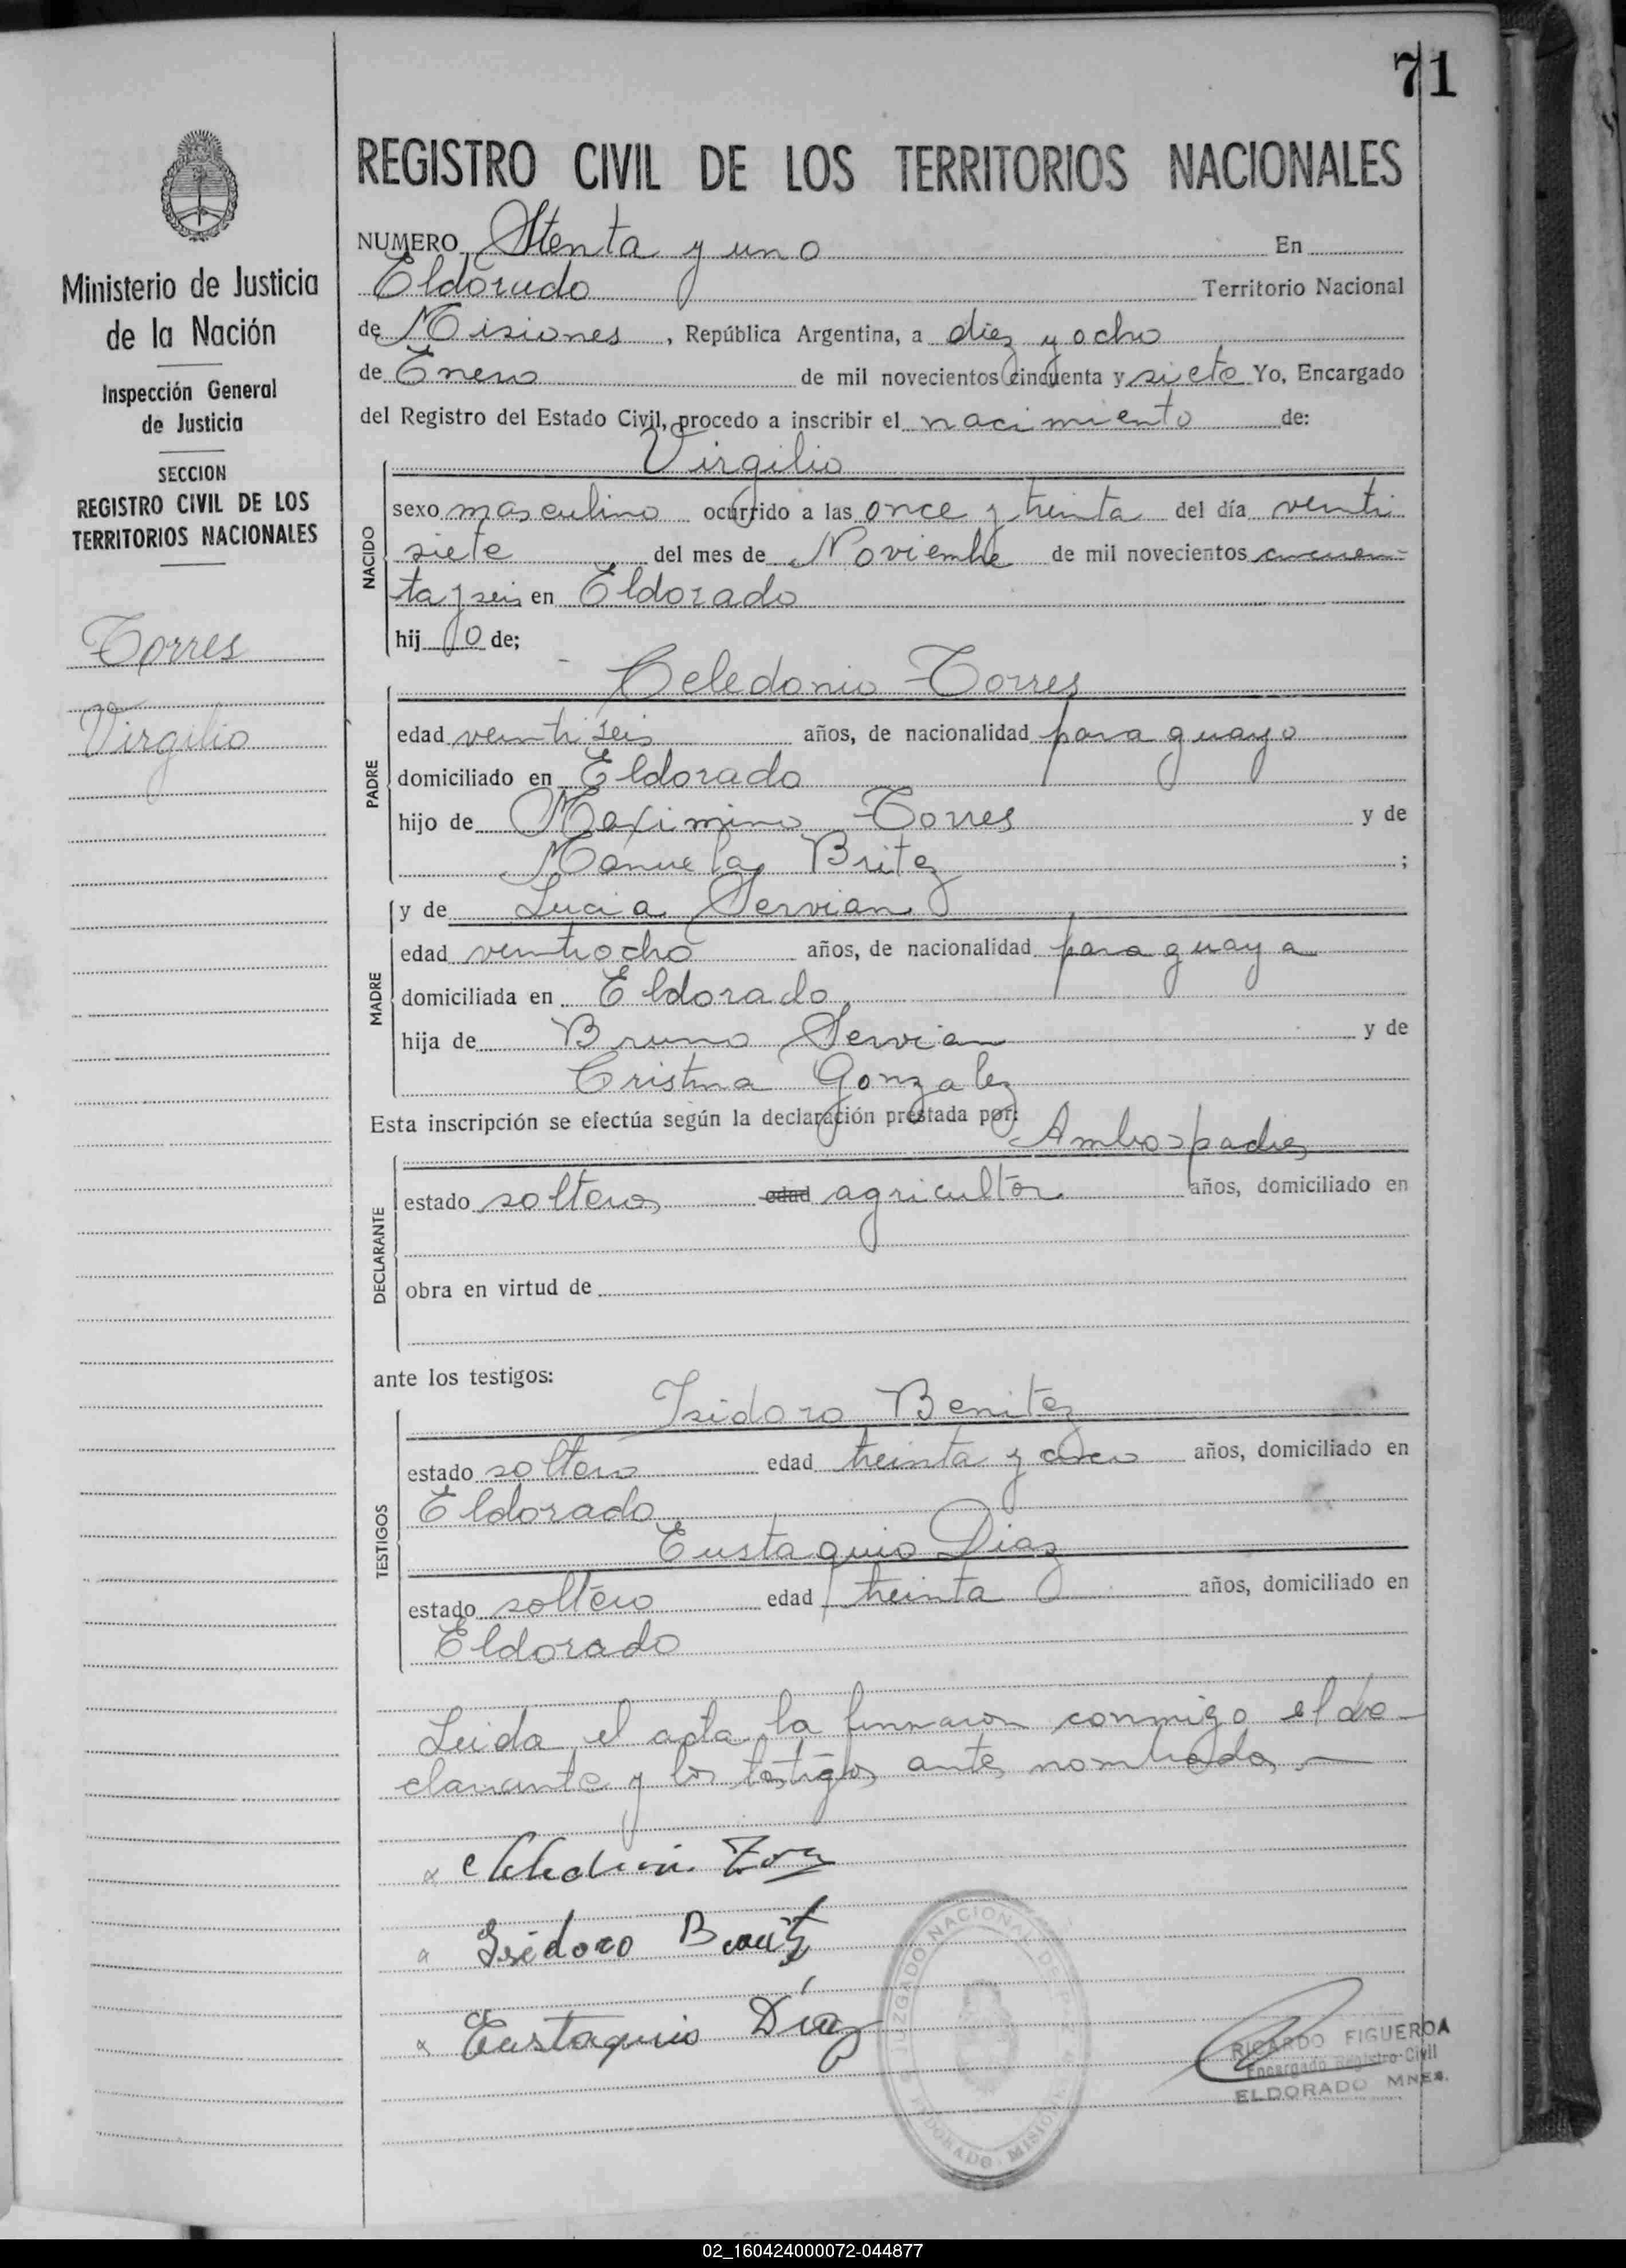 71
REGISTRO CIVIL DE LOS TERRITORIOS NACIONALES
Ministerio de Justicia
de la Nación
Inspección General
de Justicia
SECCION
REGISTRO CIVIL DE LOS
TERRITORIOS NACIONALES
Torres
Virgilio
NUMERO Stenta y uno En
Eldorado Territorio Nacional
de Misiones, República Argentina, a diez y ocho
de Enero de mil novecientos cincuenta y siete Yo, Encargado
del Registro del Estado Civil, procedo a inscribir el nacimiento de:
Virgilio
NACIDO
sexo masculino ocurrido a las once y treinta del día venti
siete del mes de Noviembre de mil novecientos cincuen-
ta y seis en Eldorado
hij o de;
Celedonio Torres
PADRE
edad veintiseis años, de nacionalidad paraguayo
domiciliado en Eldorado
hijo de Maximino Torres y de
Manuela Britez ;
MADRE
y de Lucia Servian
edad ventiocho años, de nacionalidad paraguaya
domiciliada en Eldorado
hija de Bruno Servian y de
Cristina Gonzalez
Esta inscripción se efectúa según la declaración prestada por:
Ambos padres
DECLARANTE
estado solteros edad agricultor años, domiciliado en
obra en virtud de
ante los testigos:
Isidoro Benitez
TESTIGOS
estado soltero edad treinta y cinco años, domiciliado en
Eldorado
Eustaquio Diaz
estado soltero edad treinta años, domiciliado en
Eldorado
Leida el acta la firmaron conmigo el de-
clarante y los testigos antes nombrados.
Isidoro Benitz
Eustaquio Díaz
JUZGADO NACIONAL DE PAZ
ELDORADO - MISIONES
RICARDO FIGUEROA
Encargado Registro Civil
ELDORADO MNES.
02_160424000072-044877